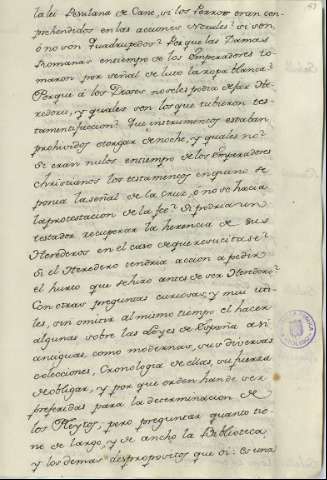 la lei Pesulana de Cane, si los Perros eran com
prehendidos en las acciones Noxales? si son,
ó no son Quadrupedos? Porque las Damas
Romanas entiempo de los Emperadores to
maron por señal de luto la ropa blanca?
Porque á los Dioses no seles podia dejar He
rederos, y quales son los que tubieron tes
tamentifaccion? Que instrumentos estaban
prohividos otorgar denoche, y quales no?
Si eran nulos entiempo de los Emperadores
Christianos los testamentos enquano se
ponia la señal de la Cruz, ó no se hacia
la protestacion de la fee? Si podria un
testador recuperar la herencia de sus
Herederos en el caso de que resucitase?
Si el Heredero tendria accion a pedir
el hurto que se hizo antes de ser Heredero?
Con otras preguntas curiosas, y mui uti-
les, sin omitir al mismo tiempo el hacer
algunas sobre las Leyes de España asi
antiguas, como modernas, sus diversas
colecciones, Cronologia de ellas, su fuerza
de obligar, y por que orden hande ser
preferidas para la determinacion de
los Pleytos, pero preguntar quanto tie-
ne de largo, y de ancho la Biblioteca,
y los demas despropositos que oi: Es una